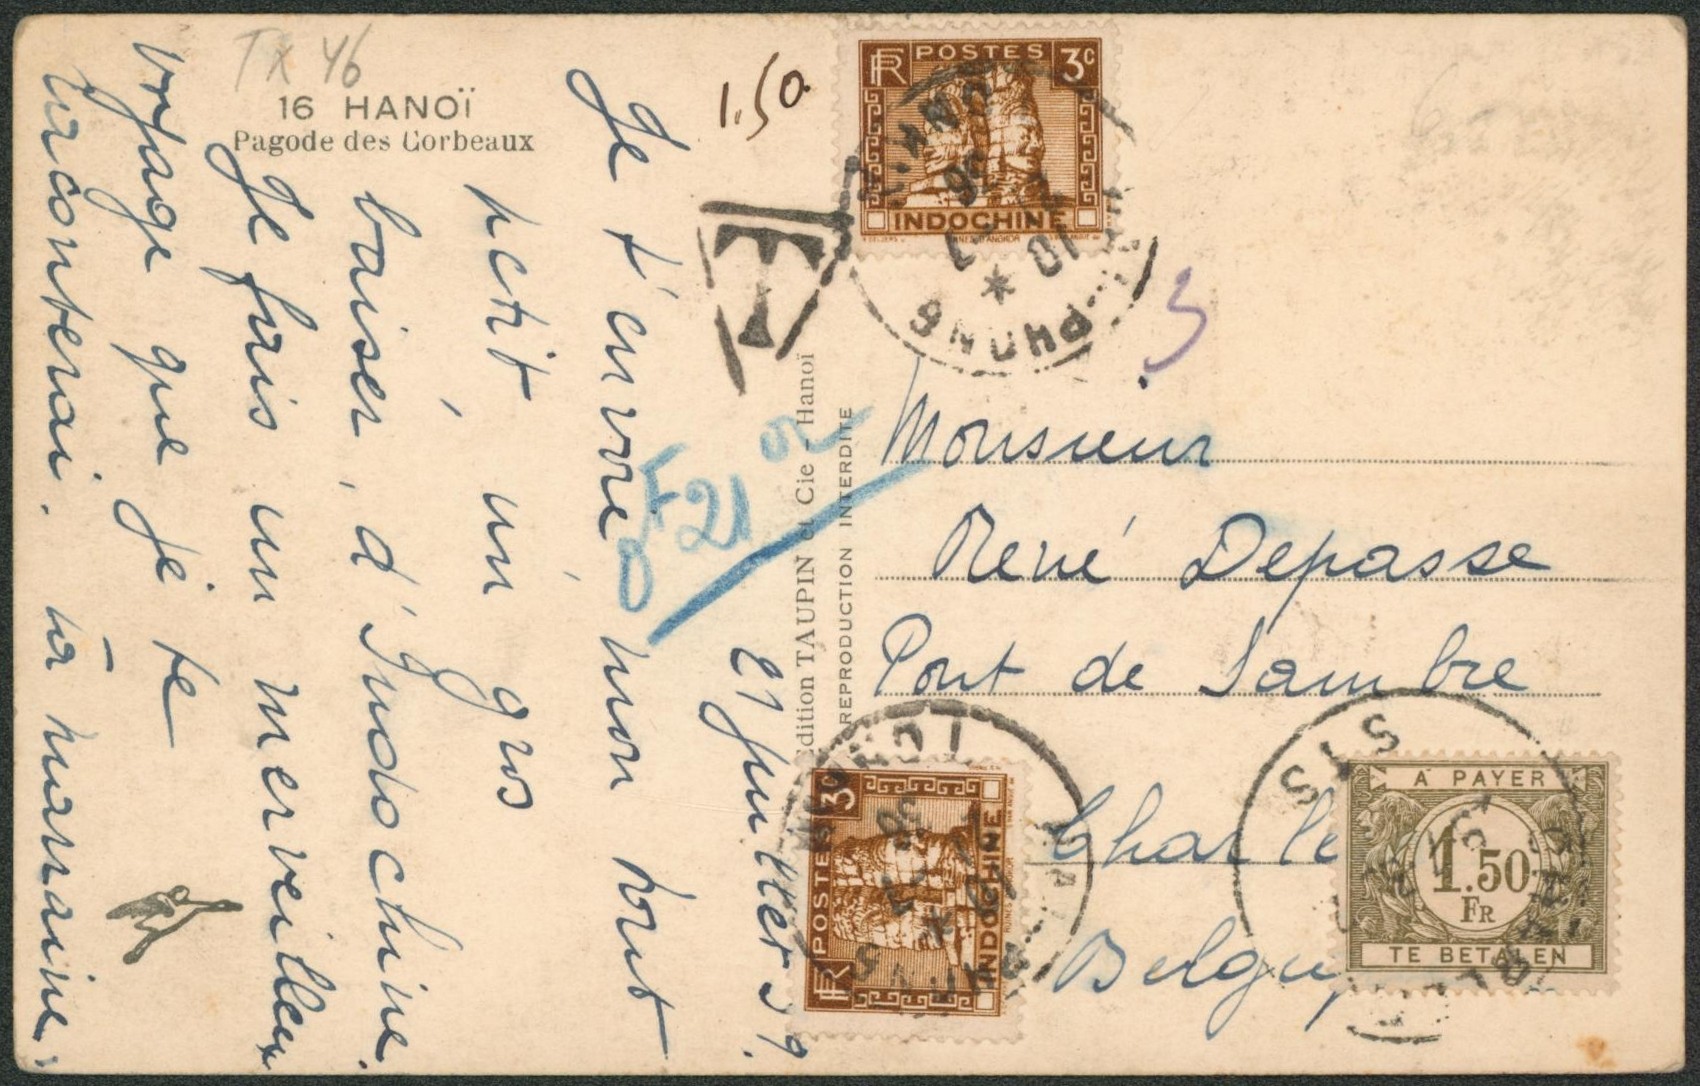 TX 46
16 HANOÏ
Pagode des Corbeaux
1.50
27 Janvier 39.
Je t'envoie mon tout
petit, un gros
baiser, d'Indochine.
Je fais un merveilleux
voyage que je te
raconterai. ta marraine.
T
Edition TAUPIN et Cie - Hanoï
REPRODUCTION INTERDITE
RF POSTES 3c
INDOCHINE
Monsieur
René Depasse
Pont de Sambre
Charle
Belgi
RF POSTES 3c
INDOCHINE
À PAYER
1.50
FR
TE BETALEN